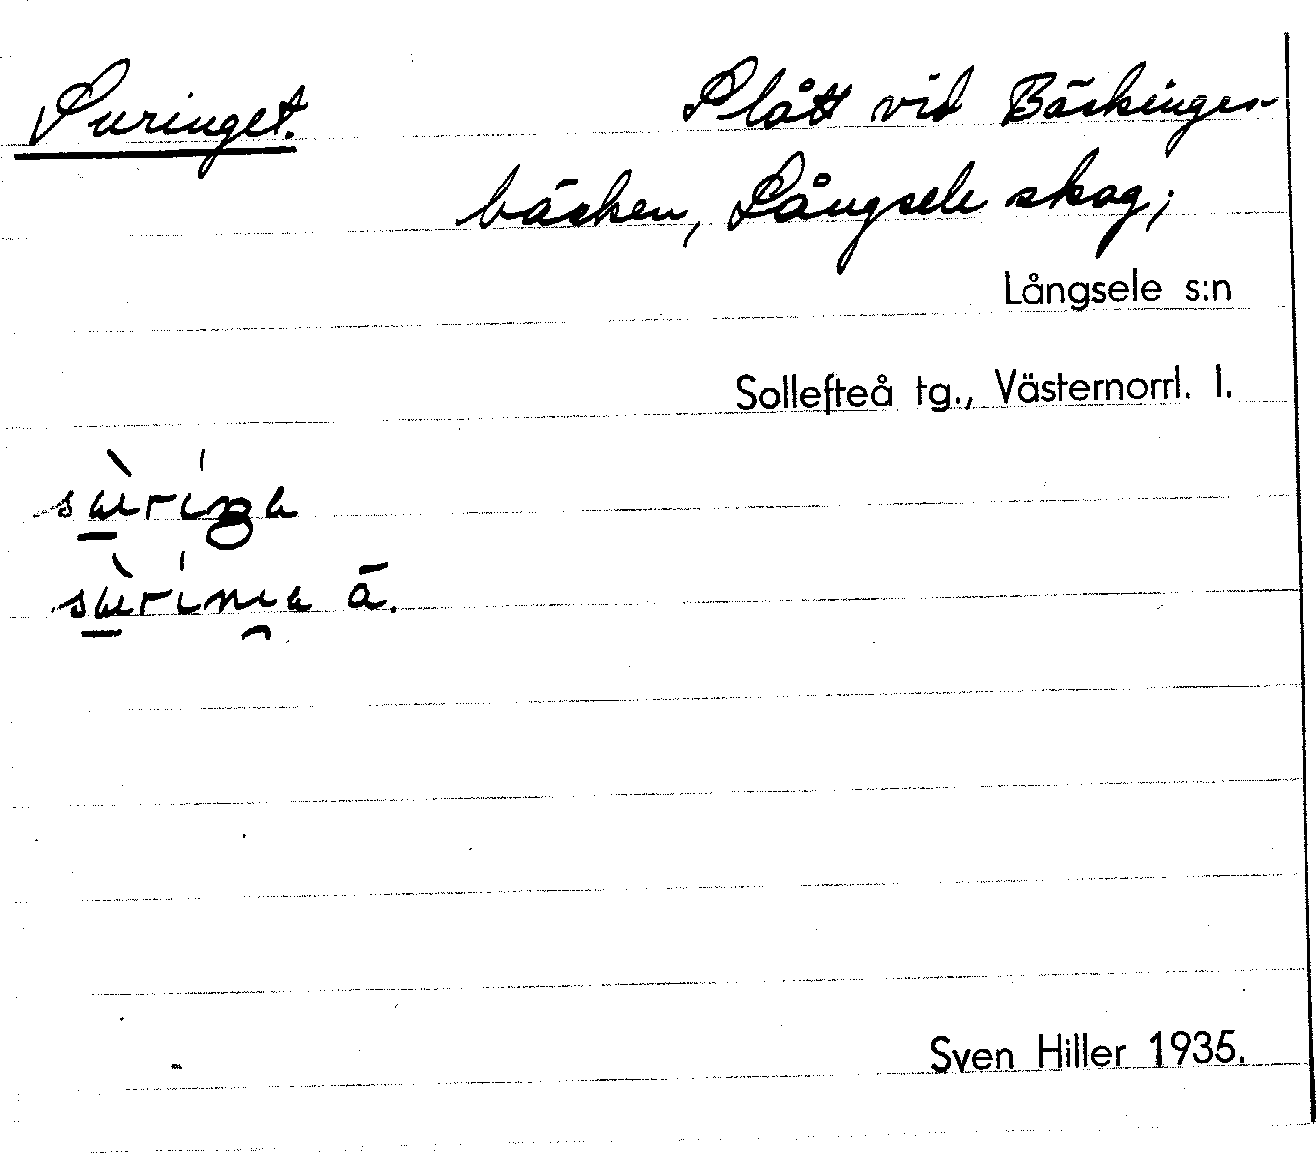 Suringet. Slått vid Bäckinges-
bäcken, Långsele skog;
Långsele s:n
Sollefteå tg., Västernorrl. l.
ā.
Sven Hiller 1935.